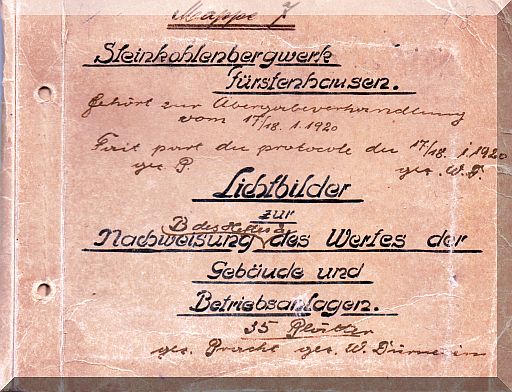 Mappe 7
Steinkohlenbergwerk
Fürstenhausen.
gehört zur Übergabeverhandlung
vom 17/18. 1. 1920
Fait part du protocole du 17/18. 1. 1920
gez. P. gez. W. D.
Lichtbilder
zur
B des Heftes 3
Nachweisung des Wertes der
Gebäude und
Betriebsanlagen.
35 Blätter
gez. Pracht gez. W.